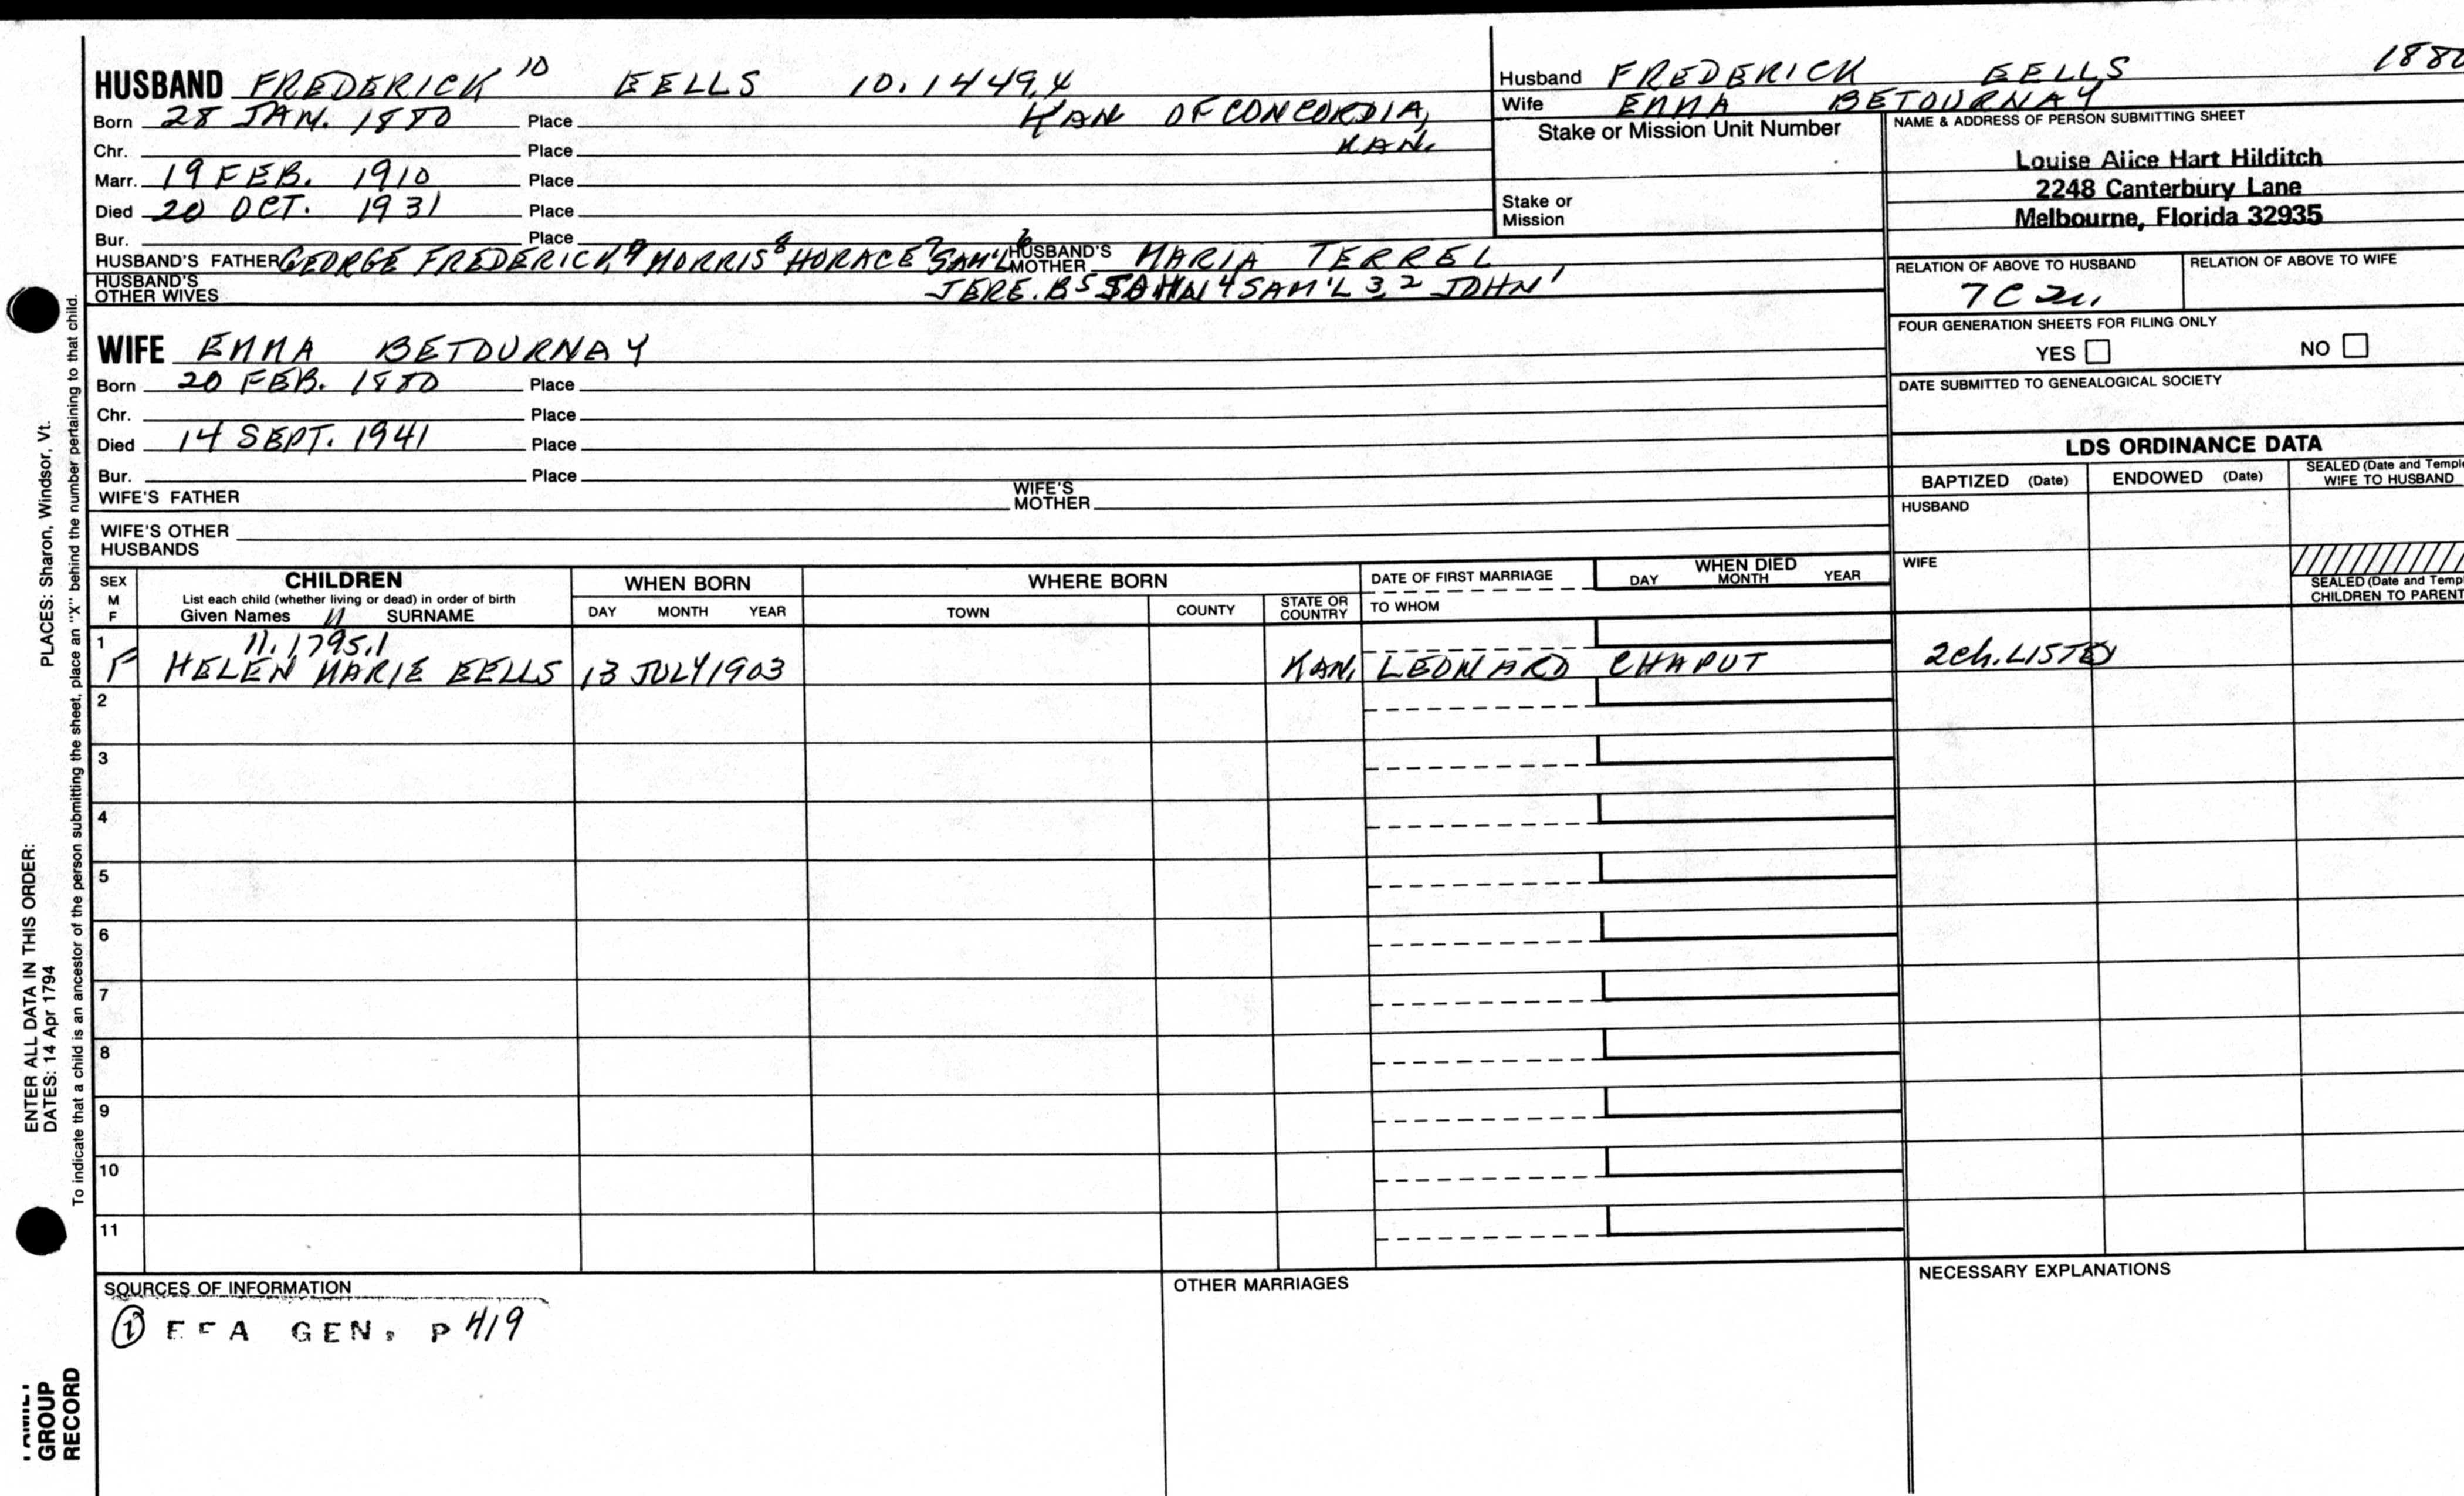 HUSBAND FREDERICK 10 EELLS 10.1449.4
Born 28 JAN. 1880 Place KAN OF CONCORDIA,
KAN.
Chr. Place
Marr. 19 FEB. 1910 Place
Died 20 OCT. 1931 Place
Bur. Place
HUSBAND'S FATHER GEORGE FREDERICK, 9 MORRIS 8 HORACE 7 SAM'L 6 HUSBAND'S MOTHER MARIA TERREL
HUSBAND'S OTHER WIVES JERE. B 5 JOHN 4 SAM'L 3,2 JOHN 1
Husband FREDERICK EELLS 1880
Wife EMMA BETOURNAY
Stake or Mission Unit Number
Stake or
Mission
NAME & ADDRESS OF PERSON SUBMITTING SHEET
Louise Alice Hart Hilditch
2248 Canterbury Lane
Melbourne, Florida 32935
RELATION OF ABOVE TO HUSBAND RELATION OF ABOVE TO WIFE
7C
FOUR GENERATION SHEETS FOR FILING ONLY
YES NO
DATE SUBMITTED TO GENEALOGICAL SOCIETY
WIFE EMMA BETOURNAY
Born 20 FEB. 1880 Place
Chr. Place
Died 14 SEPT. 1941 Place
Bur. Place
WIFE'S FATHER WIFE'S MOTHER
WIFE'S OTHER
HUSBANDS
LDS ORDINANCE DATA
BAPTIZED (Date) ENDOWED (Date) SEALED (Date and Temple
WIFE TO HUSBAND
HUSBAND
WIFE
SEALED (Date and Temp
CHILDREN TO PARENT
SEX
M
F
CHILDREN
List each child (whether living or dead) in order of birth
Given Names 11 SURNAME
WHEN BORN
DAY MONTH YEAR
WHERE BORN
TOWN COUNTY STATE OR COUNTRY
DATE OF FIRST MARRIAGE
TO WHOM
WHEN DIED
DAY MONTH YEAR
1 11.1795.1
F HELEN MARIE EELLS 13 JULY 1903 KAN. LEONARD CHAPUT 2 ch. LISTED
2
3
4
5
6
7
8
9
10
11
SOURCES OF INFORMATION
① EFA GEN. P 419
OTHER MARRIAGES
NECESSARY EXPLANATIONS
PLACES: Sharon, Windsor, Vt.
ENTER ALL DATA IN THIS ORDER:
DATES: 14 Apr 1794
To indicate that a child is an ancestor of the person submitting the sheet, place an "X" behind the number pertaining to that child.
FAMILY
GROUP
RECORD